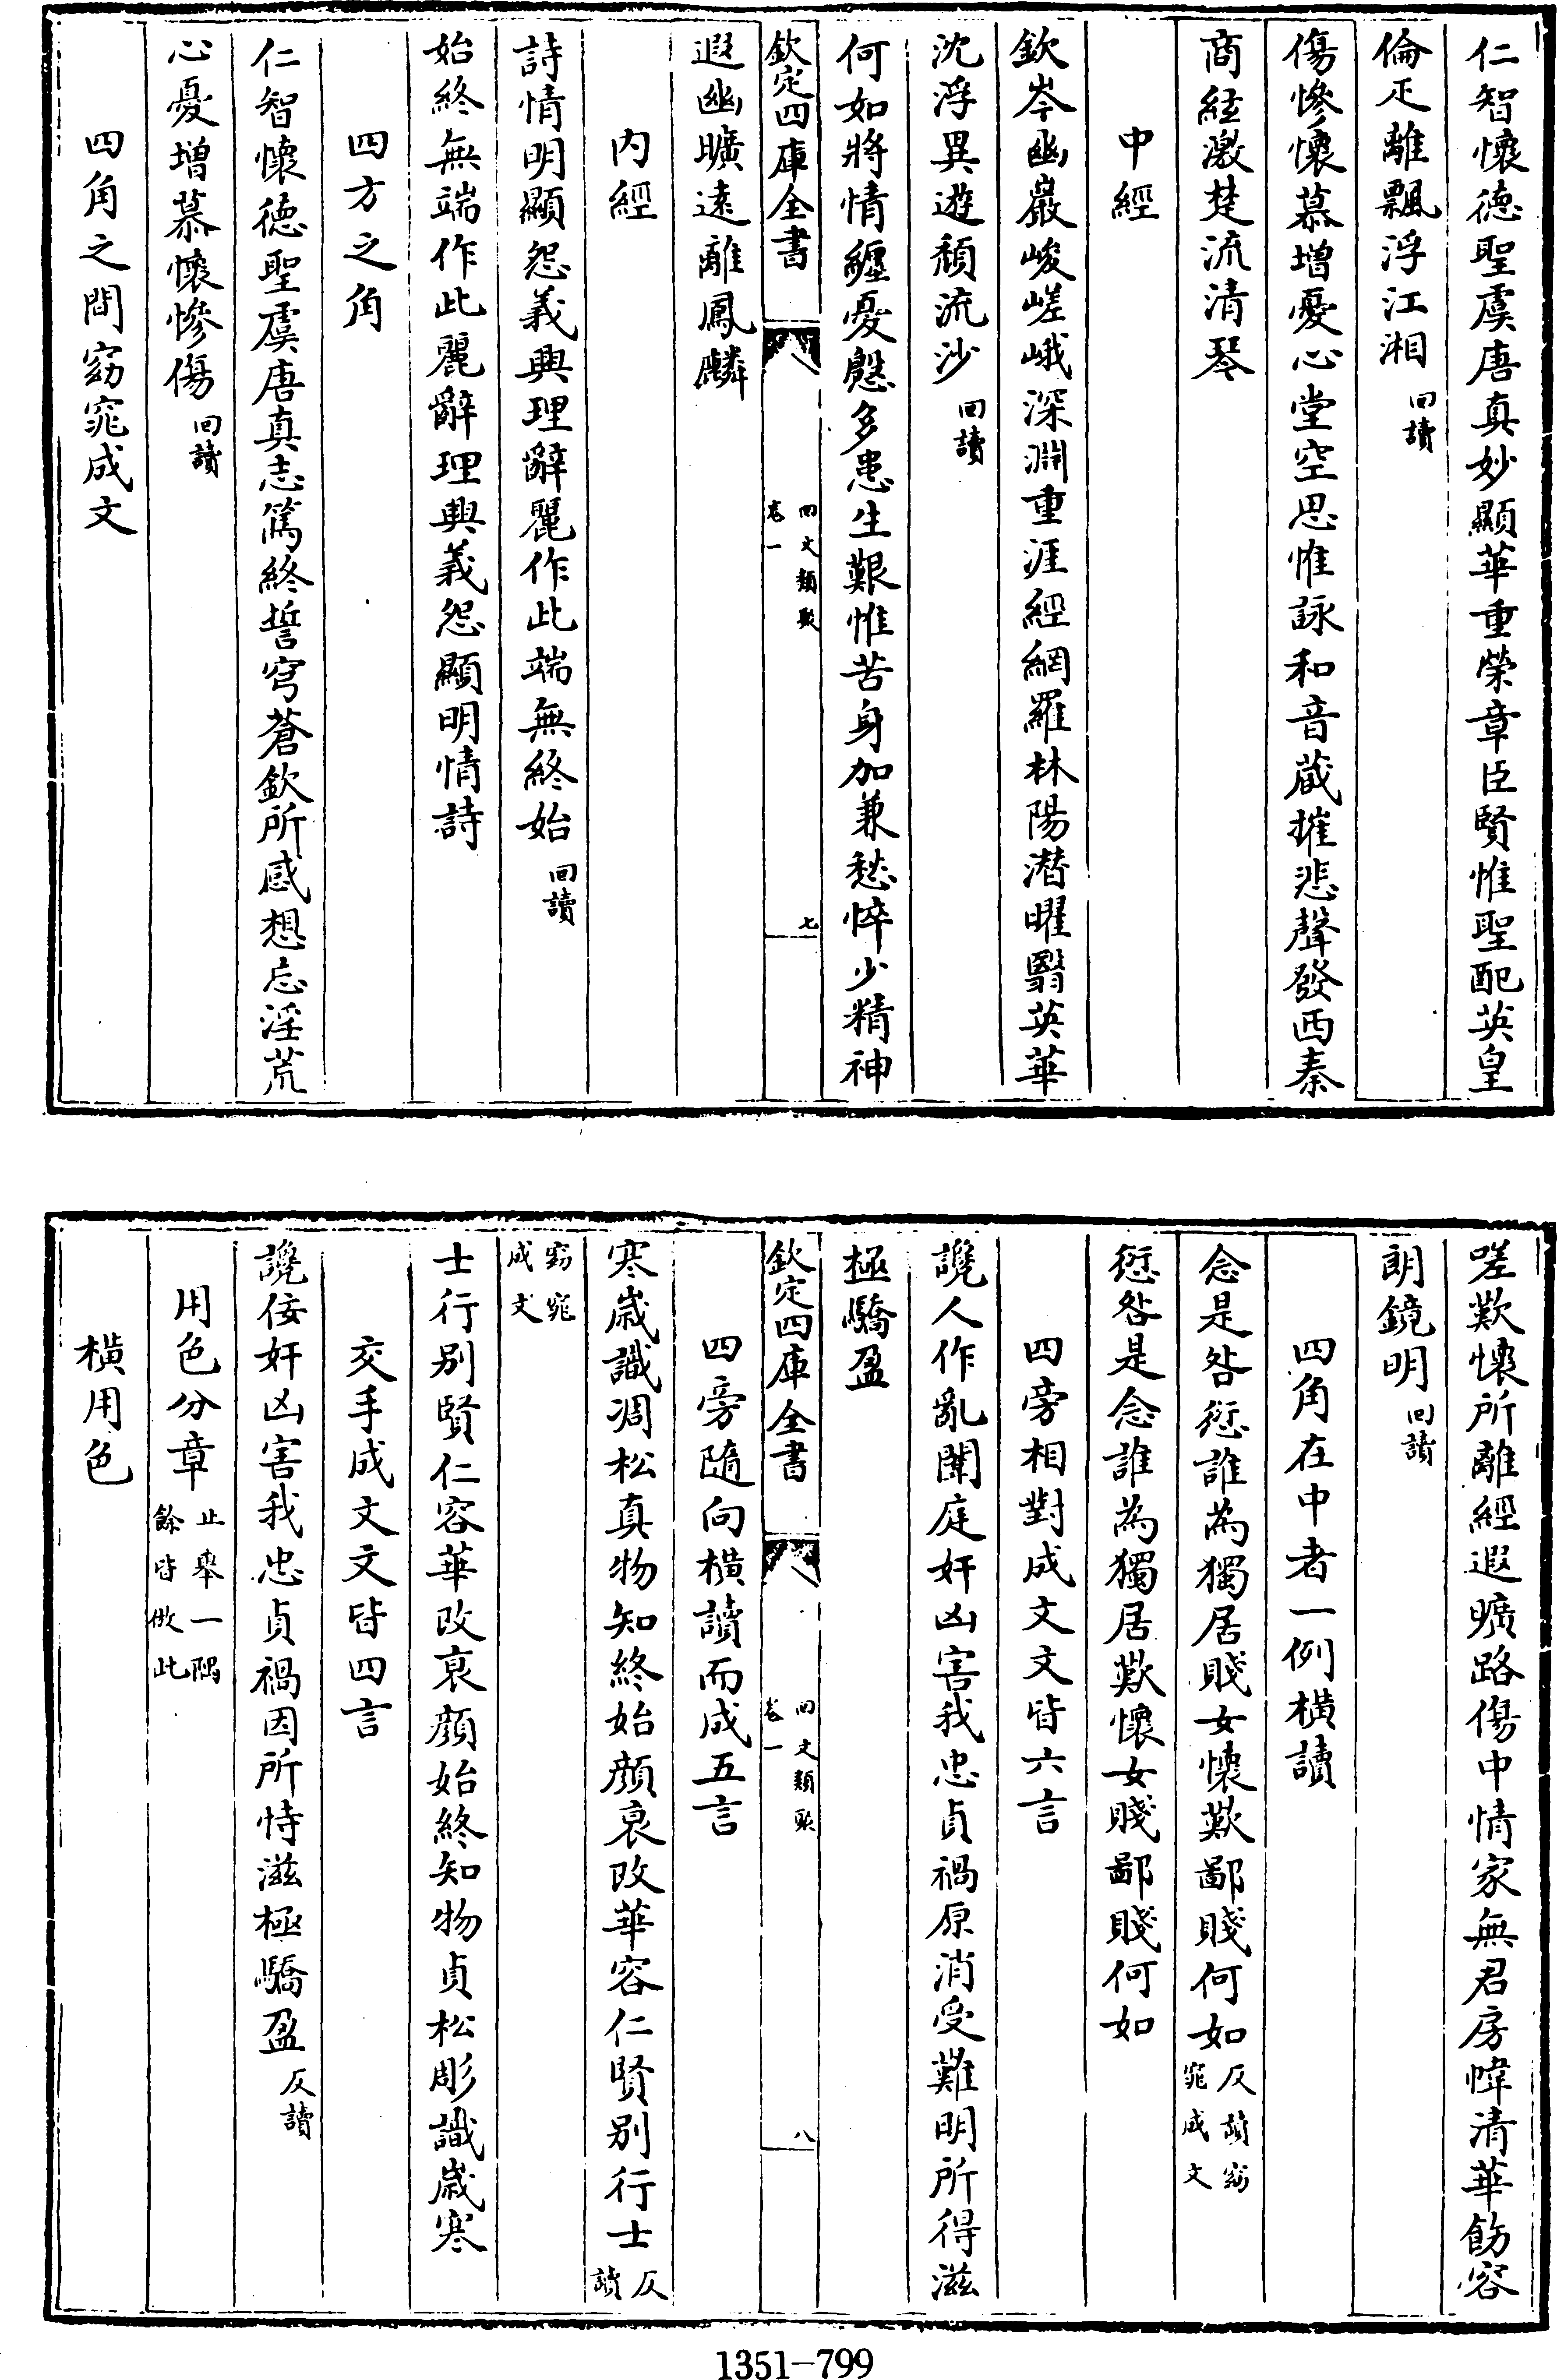 仁智懷德聖虞唐真妙顯華重榮章臣賢惟聖配英皇
倫疋離飄浮江湘回讀
傷慘懷慕增憂心堂空思惟詠和音蔵摧悲聲發西秦
商絃激楚流清琴
中經
欽岑幽巖峻嵯峨深淵重涯經網羅林陽潛曜翳英華
沈浮異遊頹流沙回讀
何如將情纏憂慇多患生艱惟苦身加兼愁悴少精神
欽定四庫全書
回文類聚
卷一
七
遐幽曠遠離鳳麟
内經
詩情明顯怨義興理辭麗作此端無終始回讀
始終無端作此麗辭理興義怨顯明情詩
四方之角
仁智懷德聖虞唐真志篤終誓穹蒼欽所感想忘淫荒
心憂增慕懷慘傷回讀
四角之間窈窕成文
嗟歎懷所離經遐曠路傷中情家無君房幃清華飭容
朗鏡明回讀
四角在中者一例橫讀
念是咎愆誰為獨居賤女懷歎鄙賤何如反讀窈窕成文
愆咎是念誰為獨居歎懷女賤鄙賤何如
四旁相對成文文皆六言
讒人作亂闈庭奸凶害我忠貞禍原消受難明所得滋
極驕盈
欽定四庫全書
回文類聚
卷一
八
四旁隨向橫讀而成五言
寒歲識凋松真物知終始顔衰改華容仁賢别行士反讀
窈窕成文
士行别賢仁容華改衰顔始終知物貞松彫識歲寒
交手成文文皆四言
讒佞奸凶害我忠貞禍因所恃滋極驕盈反讀
用色分章止舉一隅餘皆倣此
橫用色
1351-799